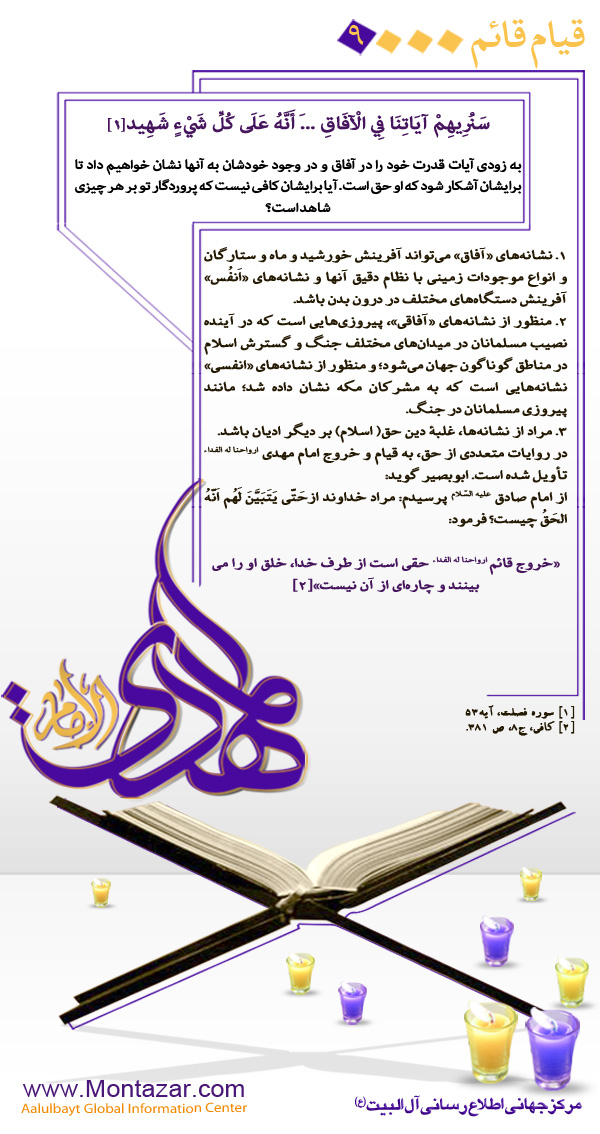 قیام قائم ۹
سَنُرِيهِمْ آيَاتِنَا فِي الْآفَاقِ ...َ أَنَّهُ عَلَى كُلِّ شَيْءٍ شَهِيد[۱]
به زودی آیات قدرت خود را در آفاق و در وجود خودشان به آنها نشان خواهیم داد تا
برایشان آشکار شود که او حق است. آیا برایشان کافی نیست که پروردگار تو بر هر چیزی
شاهد است؟
۱. نشانه‌های «آفاق» می‌تواند آفرینش خورشید و ماه و ستارگان
و انواع موجودات زمینی با نظام دقیق آنها و نشانه‌های «اَنفُس»
آفرینش دستگاه‌های مختلف در درون بدن باشد.
۲. منظور از نشانه‌های «آفاقی»، پیروزی‌هایی است که در آینده
نصیب مسلمانان در میدان‌های مختلف جنگ و گسترش اسلام
در مناطق گوناگون جهان می‌شود؛ و منظور از نشانه‌های «انفسی»
نشانه‌هایی است که به مشرکان مکه نشان داده شد؛ مانند
پیروزی مسلمانان در جنگ.
۳. مراد از نشانه‌ها، غلبۀ دین حق( اسلام) بر دیگر ادیان باشد.
در روایات متعددی از حق، به قیام و خروج امام مهدی ارواحنا له الفداء
تأویل شده است. ابوبصیر گوید:
از امام صادق علیه السّلام پرسیدم: مراد خداوند از حَتّی یَتَبَیَّنَ لَهُم اَنّهُ
الحَقُ چیست؟ فرمود:
«خروج قائم ارواحنا له الفداء حقی است از طرف خدا، خلق او را می
بینند و چاره‌ای از آن نیست»[۲]
الإمام
مهدی
[۱] سوره فصلت، آیه۵۳
[۲] کافی، ج۸، ص ۳۸۱.
www.Montazar.com
Aalulbayt Global Information Center
مرکز جهانی اطلاع رسانی آل البیت (ع)